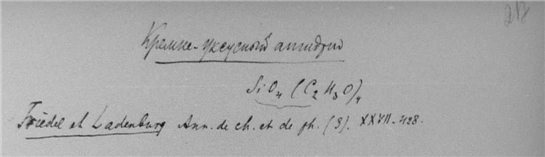 Кремне-уксусный ангидрид
SiO₄ (C₂H₃O)₄
Friedel et Ladenburg Ann. de ch. et de ph. (3). XXVII-428.